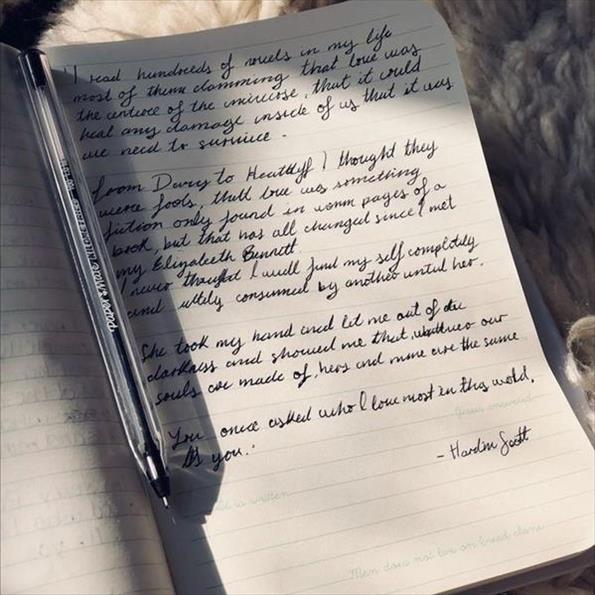 I read hundreeds of novels in my life
most of them clamming that love was
the centere of the universe, that it could
heal any damage inside of us that it was
we need to survive.
from Darcy to I thought they
were fools, that love was something
fiction only found in worn pages of a
book, but that has all changed since I met
my Elizabeth Bennett.
I never thought I will find my self completely
and utterly consumed by another until her.
She took my hand and let me out of the
darkness and showed me that, whatever our
souls are made of, hers and mine are the same
You once asked who I love most in this world,
Its you.
- Hardin Scott
Jesus answered
is written
Man does not live on bread alone